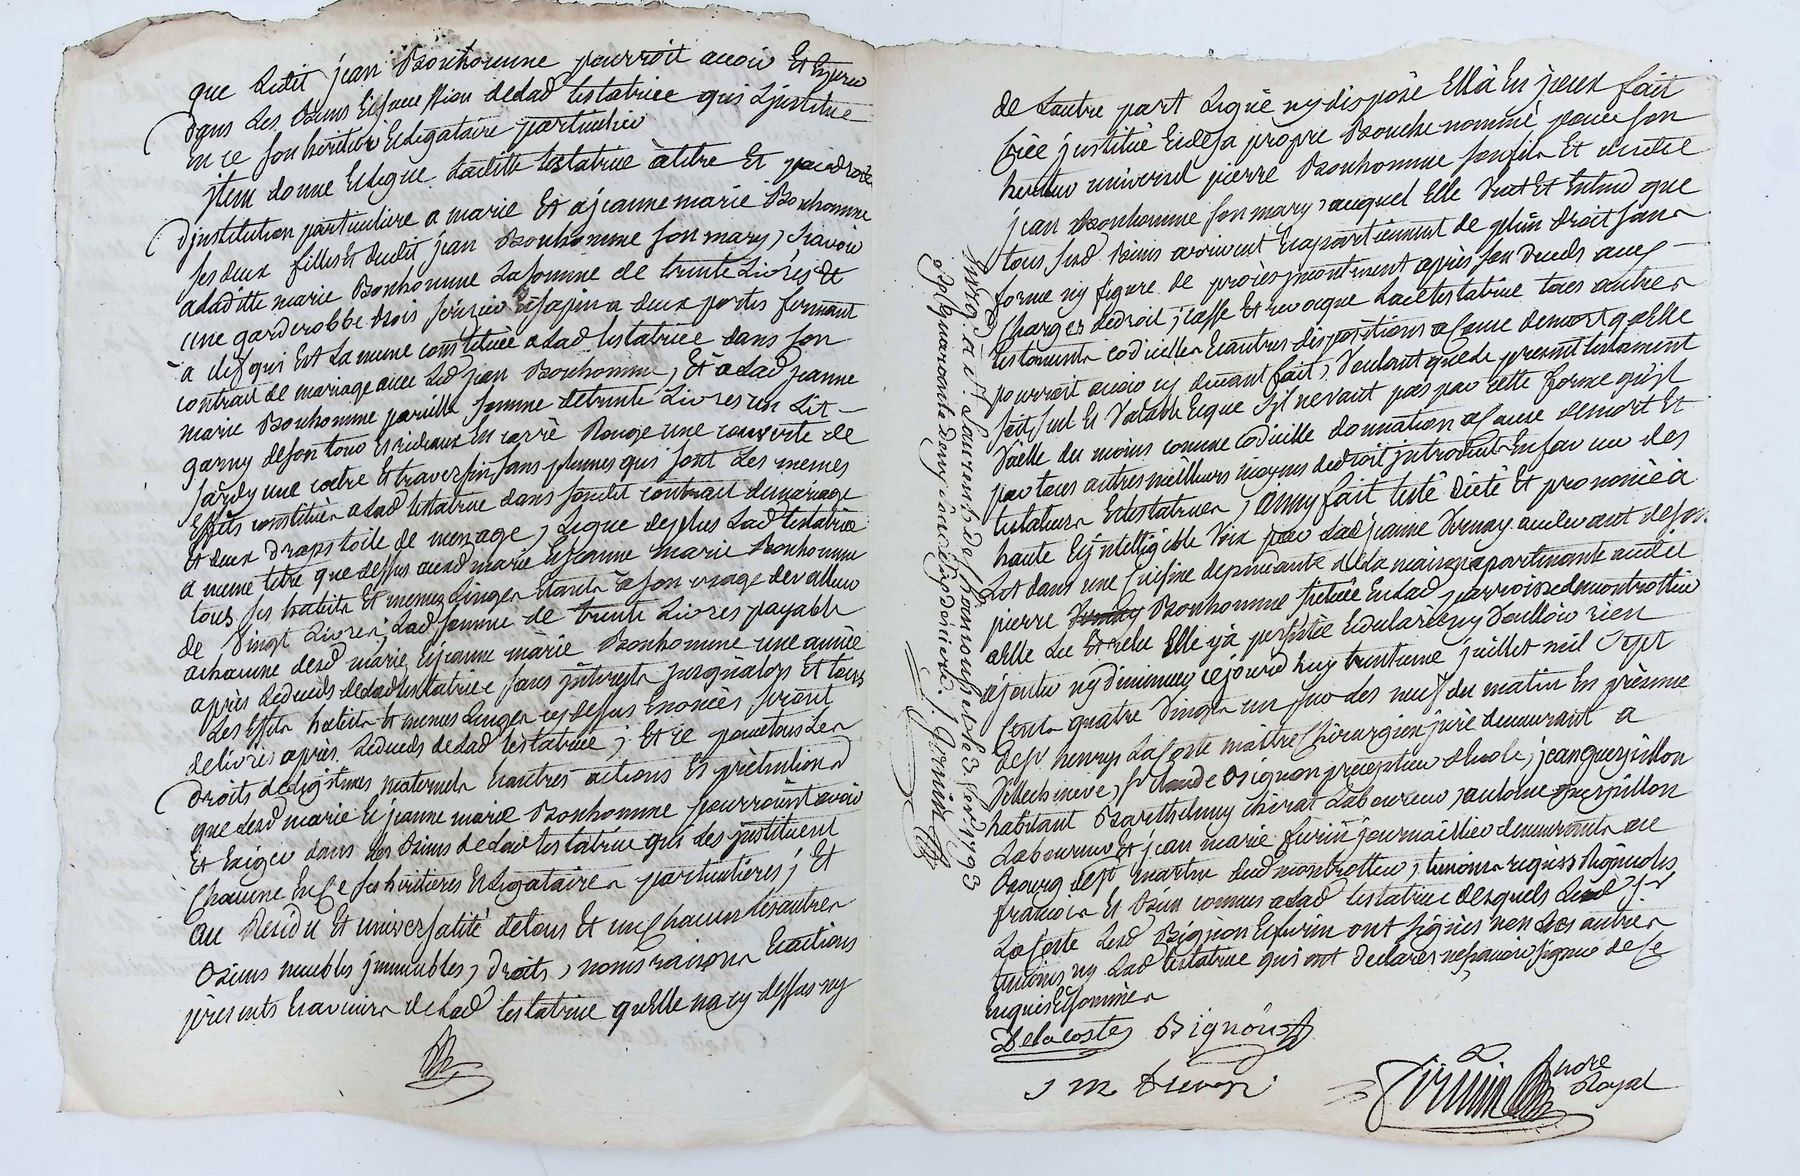 que Ledit jean Bonhomme pourroit avoir Et Exiger
dans Les Biens Et succession deladᵉ testatrice qui L'jnstitue
en ce son heritier Et Legataire particulier
jtem donne Et Legue Laditte testatrice à titre Et par droit
d'jnstitution particuliere a marie Et a jeanne marie Bonhomme
ses deux filles Et dudit jean Bonhomme son mary, scavoir
a laditte marie Bonhomme La somme de trente Livres Et
une garderobbe bois sapin a deux portes fermant
à clef qui Est La meme constituée a ladᵉ testatrice dans son
contrat de mariage avec Led jean Bonhomme, Et à Ladᵉ jeanne
marie Bonhomme pareille somme de trente Livres un Lit
garny de son tour Et rideaux En carré Rouge une couverte de
une coitre Et traversin sans plumes qui sont Les memes
Effets constitués a ladᵉ testatrice dans sondit contrat de mariage
Et deux draps toile de menage, Legue de plus Ladᵉ testatrice
a meme titre que dessus auxd marie Et jeanne marie Bonhomme
tous ses habits Et menus Linges Etants à son usage de valleur
de vingt Livres, Lad somme de trente Livres payable
a chacune desd marie Et jeanne marie Bonhomme une année
après Le deceds de lad testatrice sans jnterests jusqu'alors Et tous
Les Effets habits Et menus Linges cy dessus Enoncés seront
delivrés après Le deceds de lad testatrice, Et ce pour tous Les
droits de Legitimes maternels Et autres actions Et prétentions
que Lesd marie Et jeanne marie Bonhomme pourroient avoir
Et Exiger dans Les Biens de lad testatrice qui Les jnstituent
chacune En ce ses heritieres Et Legataires particulieres; Et
au Residu Et universalité de tous Et un chacun Les autres
Biens meubles jmmeubles, droits, noms raisons Et actions
présents Et avenirs de lad testatrice quelle n'a cy dessus ny
de Lautre part Legué ny disposé Elle à En jceux fait
créé jnstitué Et de sa propre Bouche nommé pour son
heritier universel pierre Bonhomme son fils Et dudit
jean Bonhomme son mary, auquel Elle veut Et Entend que
tous sesd Biens arrivent Et apartiennent de plein droit sans
forme ny figure de procès jncontinent après son deceds aux
charges de droit; casse Et revocque Lad testatrice tous autres
testaments codicilles Et autres dispositions a cause de mort qu'elle
pourroit avoir cy devant fait, voulant que le present testament
soit seul Et valable Et que s'jl ne vaut pas par cette forme qu'jl
vaille du moins comme codicille donnation a cause de mort Et
par tous autres meilleurs moyens de droit jntroduits En faveur des
testateurs Et testatrices, ainsy fait testé dicté Et prononcé à
haute Et jntelligible voix par Lad jeanne Vernay au devant de son
Lit dans une cuisine dependante de La maison apartenante audit
pierre Bonhomme scituée En lad parroisse de montrottier
a Elle Lu Et relu Elle y a persisté Et declaré n'y vouloir rien
ajouter ny diminuer cejourd'huy trentieme juillet mil sept
cents quatre vingts un sur Les neuf du matin En présence
de sʳ henry Lacoste maitre chirurgien juré demeurant a
Villechenève, sʳ Claude Bignon précepteur d'école, jean guerpillon
habitant Barthelemy chirat Laboureur, antoine guerpillon
Laboureur Et jean marie furin journaillier demeurants au
Bourg de sᵗ martin dud montrottier, temoins requis Regnicoles
francois Et Bien connus a lad testatrice desquels Led sʳ
Lacoste Lesd Bignon Et furin ont signés non Les autres
temoins ny Lad testatrice qui ont declarés ne scavoir signer de ce
Enquis Et sommés
Delacoste Bignon
j m furin
Nore Royal
Enreg. a Sᵗ Laurent de Chamousset le 3 fevʳ 1793